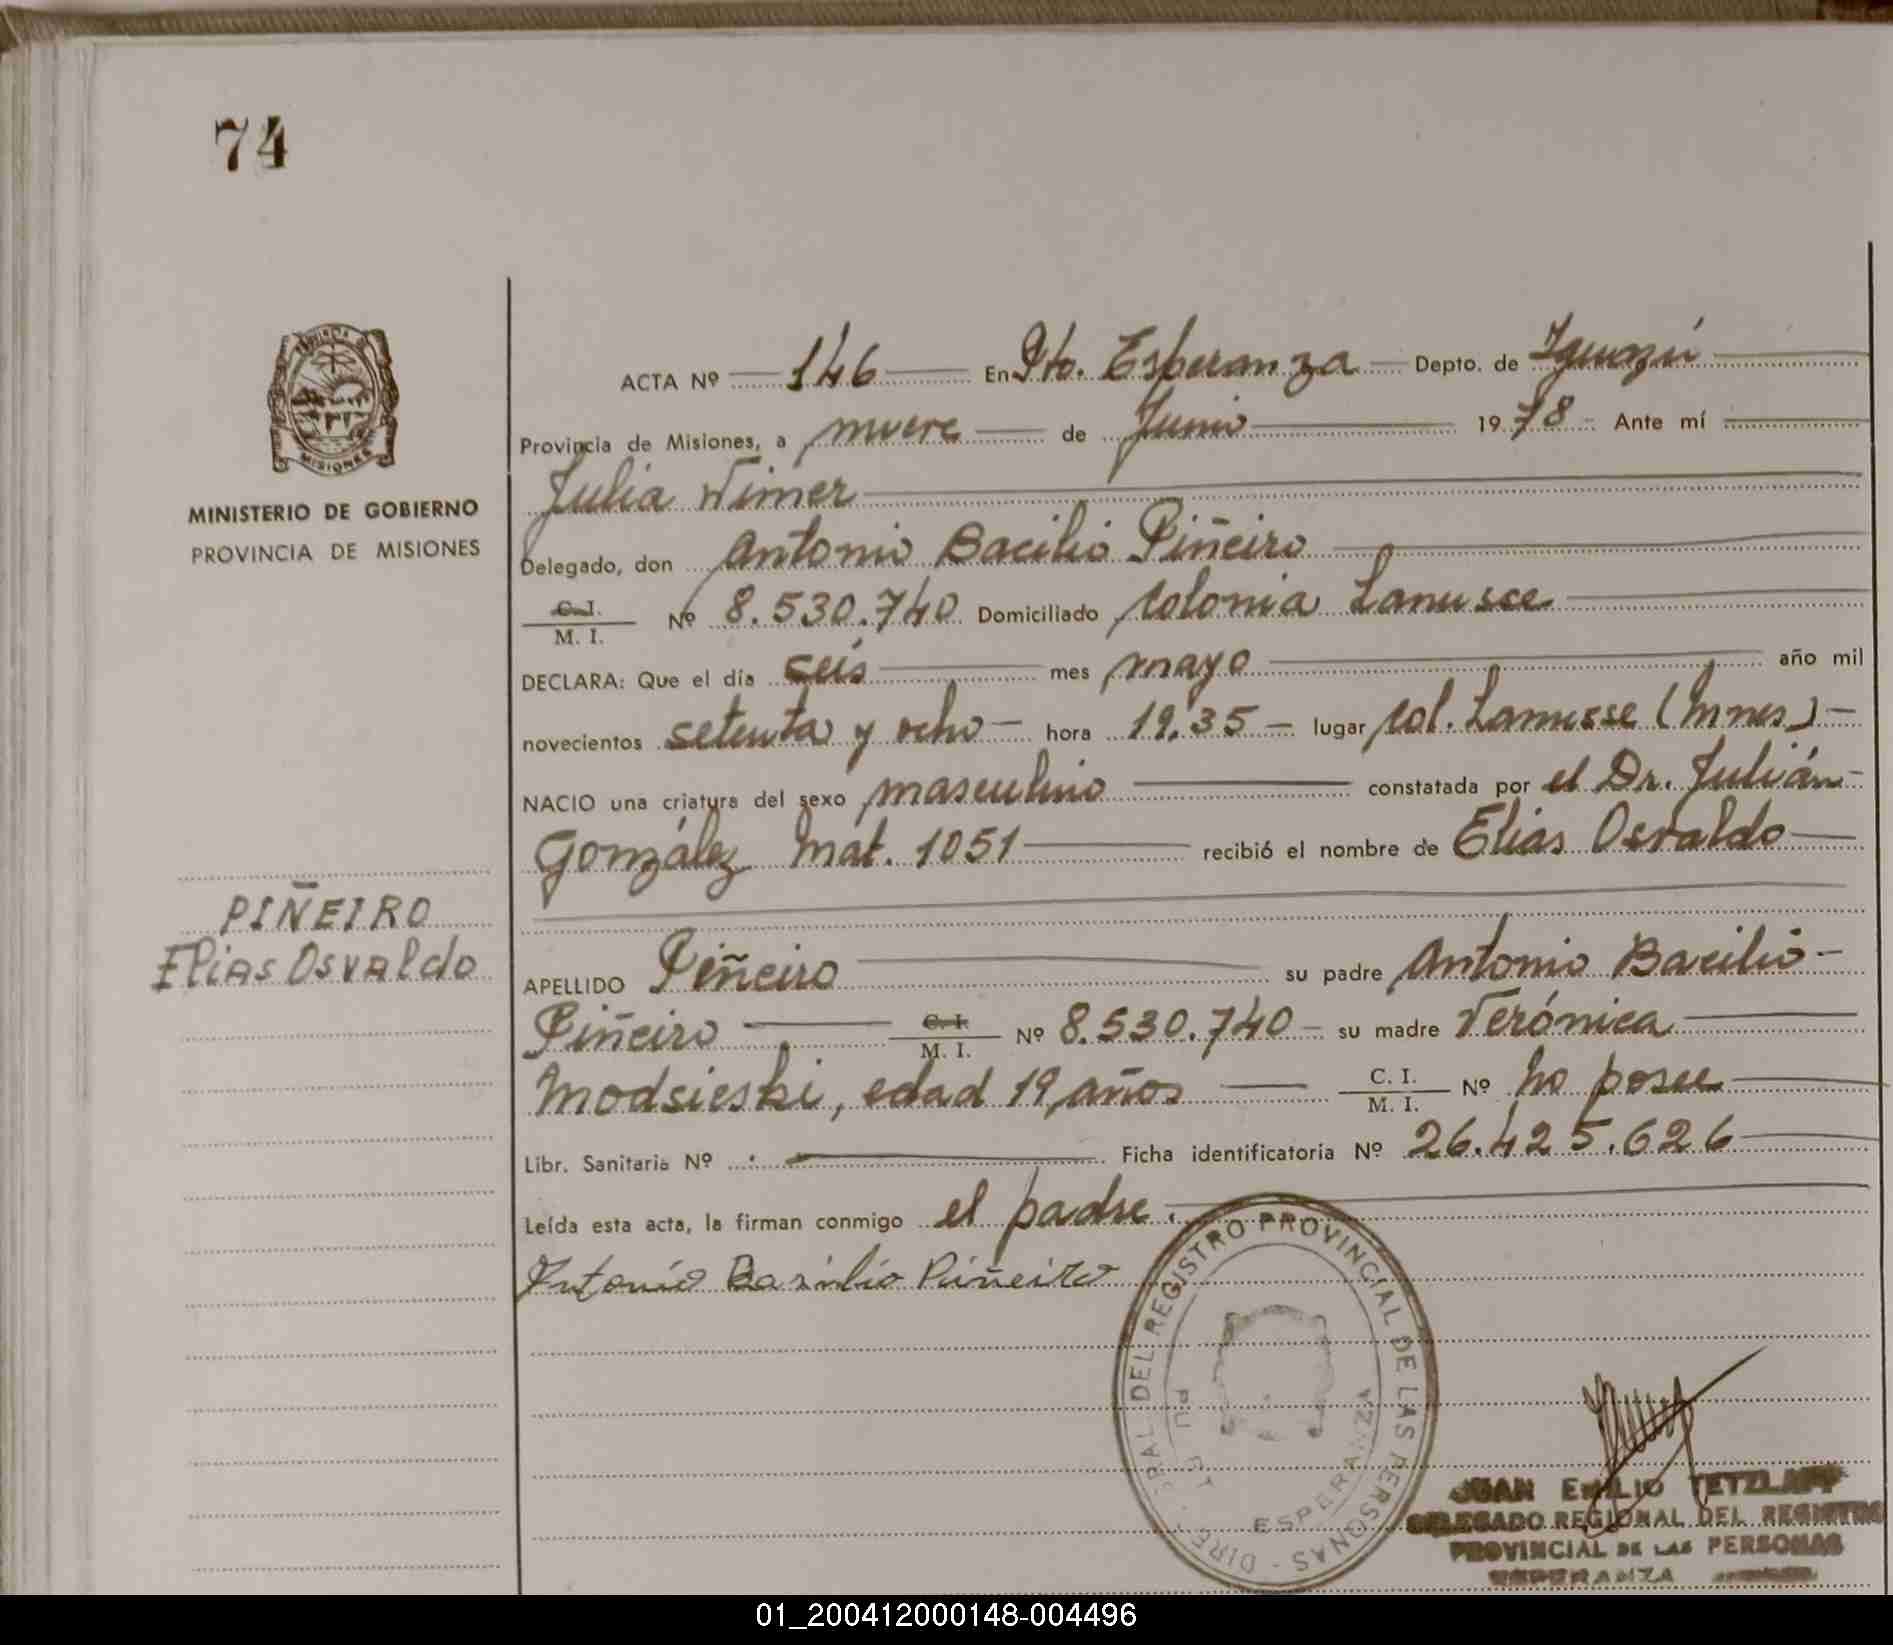 74
PROVINCIA DE
MISIONES
MINISTERIO DE GOBIERNO
PROVINCIA DE MISIONES
PIÑEIRO
Elias Osvaldo
ACTA Nº 146 En Pto. Esperanza Depto. de Iguazú
Provincia de Misiones, a nueve de Junio 1978 Ante mí
Julia Wimer
Delegado, don Antonio Bacilio Piñeiro
C. I. / M. I. Nº 8.530.740 Domiciliado Colonia Lanusse
DECLARA: Que el día seis mes mayo año mil
novecientos setenta y ocho hora 19,35 lugar Col. Lanusse (Mnes)
NACIO una criatura del sexo masculino constatada por el Dr. Julián
González Mat. 1051 recibió el nombre de Elias Osvaldo
APELLIDO Piñeiro su padre Antonio Bacilio
Piñeiro C. I. / M. I. Nº 8.530.740 su madre Verónica
Modsieski, edad 19 años C. I. / M. I. Nº no posee
Libr. Sanitaria Nº Ficha identificatoria Nº 26.425.626
Leída esta acta, la firman conmigo el padre.
Antonio Basilio Piñeiro
DEL REGISTRO PROVINCIAL DE LAS PERSONAS - DIRE
ESPERANZA
JUAN EMILIO TETZLAFF
DELEGADO REGIONAL DEL REGISTRO
PROVINCIAL DE LAS PERSONAS
ESPERANZA
01_200412000148-004496